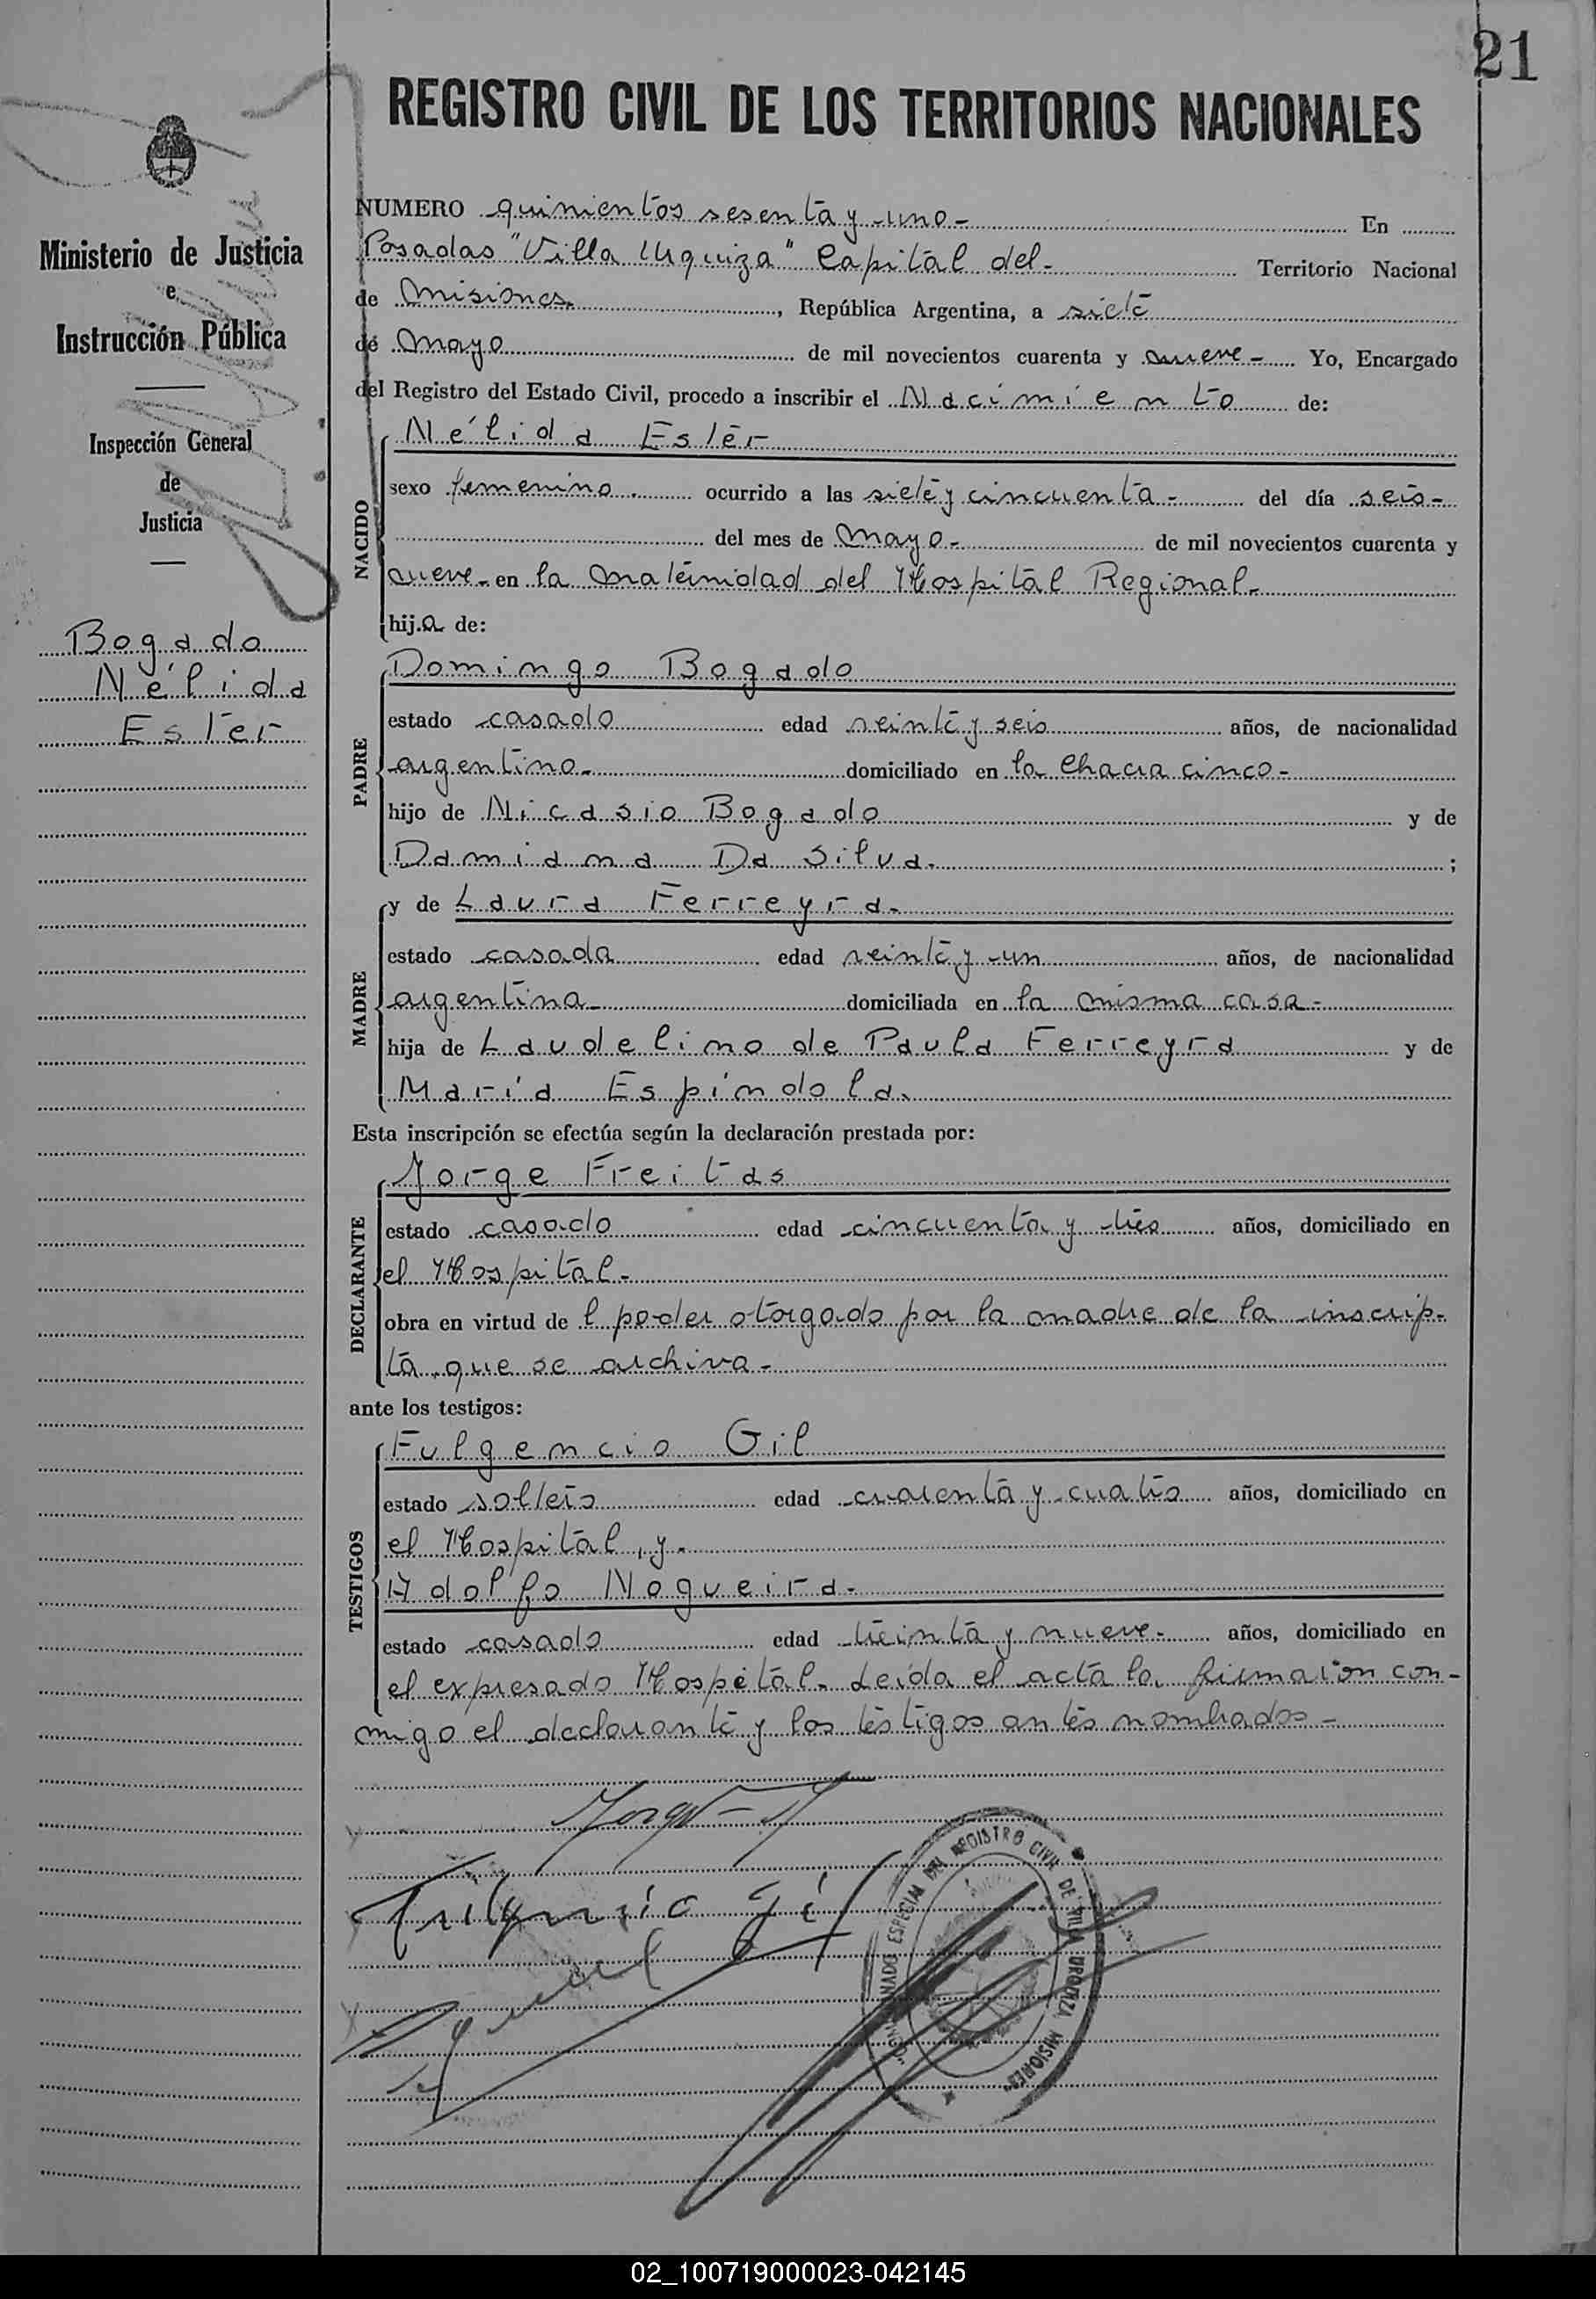 21
REGISTRO CIVIL DE LOS TERRITORIOS NACIONALES
Ministerio de Justicia
e
Instrucción Pública
Inspección General
de
Justicia
Bogado
Nélida
Ester
NUMERO quinientos sesenta y uno- En
Posadas "Villa Urquiza" Capital del- Territorio Nacional
de Misiones, República Argentina, a siete
de Mayo de mil novecientos cuarenta y nueve- Yo, Encargado
del Registro del Estado Civil, procedo a inscribir el Nacimiento de:
NACIDO
Nélida Ester
sexo femenino. ocurrido a las siete y cincuenta- del día seis-
del mes de Mayo- de mil novecientos cuarenta y
nueve- en la Maternidad del Hospital Regional-
hija de:
PADRE
Domingo Bogado
estado casado edad veinte y seis años, de nacionalidad
argentino- domiciliado en la Chacra cinco-
hijo de Nicasio Bogado y de
Damiana Da Silva. ;
MADRE
y de Laura Ferreyra.
estado casada edad veinte y un años, de nacionalidad
argentina- domiciliada en la misma casa-
hija de Laudelino de Paula Ferreyra y de
María Espíndola.
Esta inscripción se efectúa según la declaración prestada por:
DECLARANTE
Jorge Freitas
estado casado edad cincuenta y tres años, domiciliado en
el Hospital-
obra en virtud del poder otorgado por la madre de la inscrip-
ta, que se archiva-
ante los testigos:
TESTIGOS
Fulgencio Gil
estado soltero edad cuarenta y cuatro años, domiciliado en
el Hospital, y-
Adolfo Nogueira-
estado casado edad treinta y nueve- años, domiciliado en
el expresado Hospital. Leída el acta la firmaron con-
migo el declarante y los testigos antes nombrados-
Fulgencio Gil
ESPECIAL DEL REGISTRO CIVIL DE VILLA URQUIZA MISIONES
02_100719000023-042145